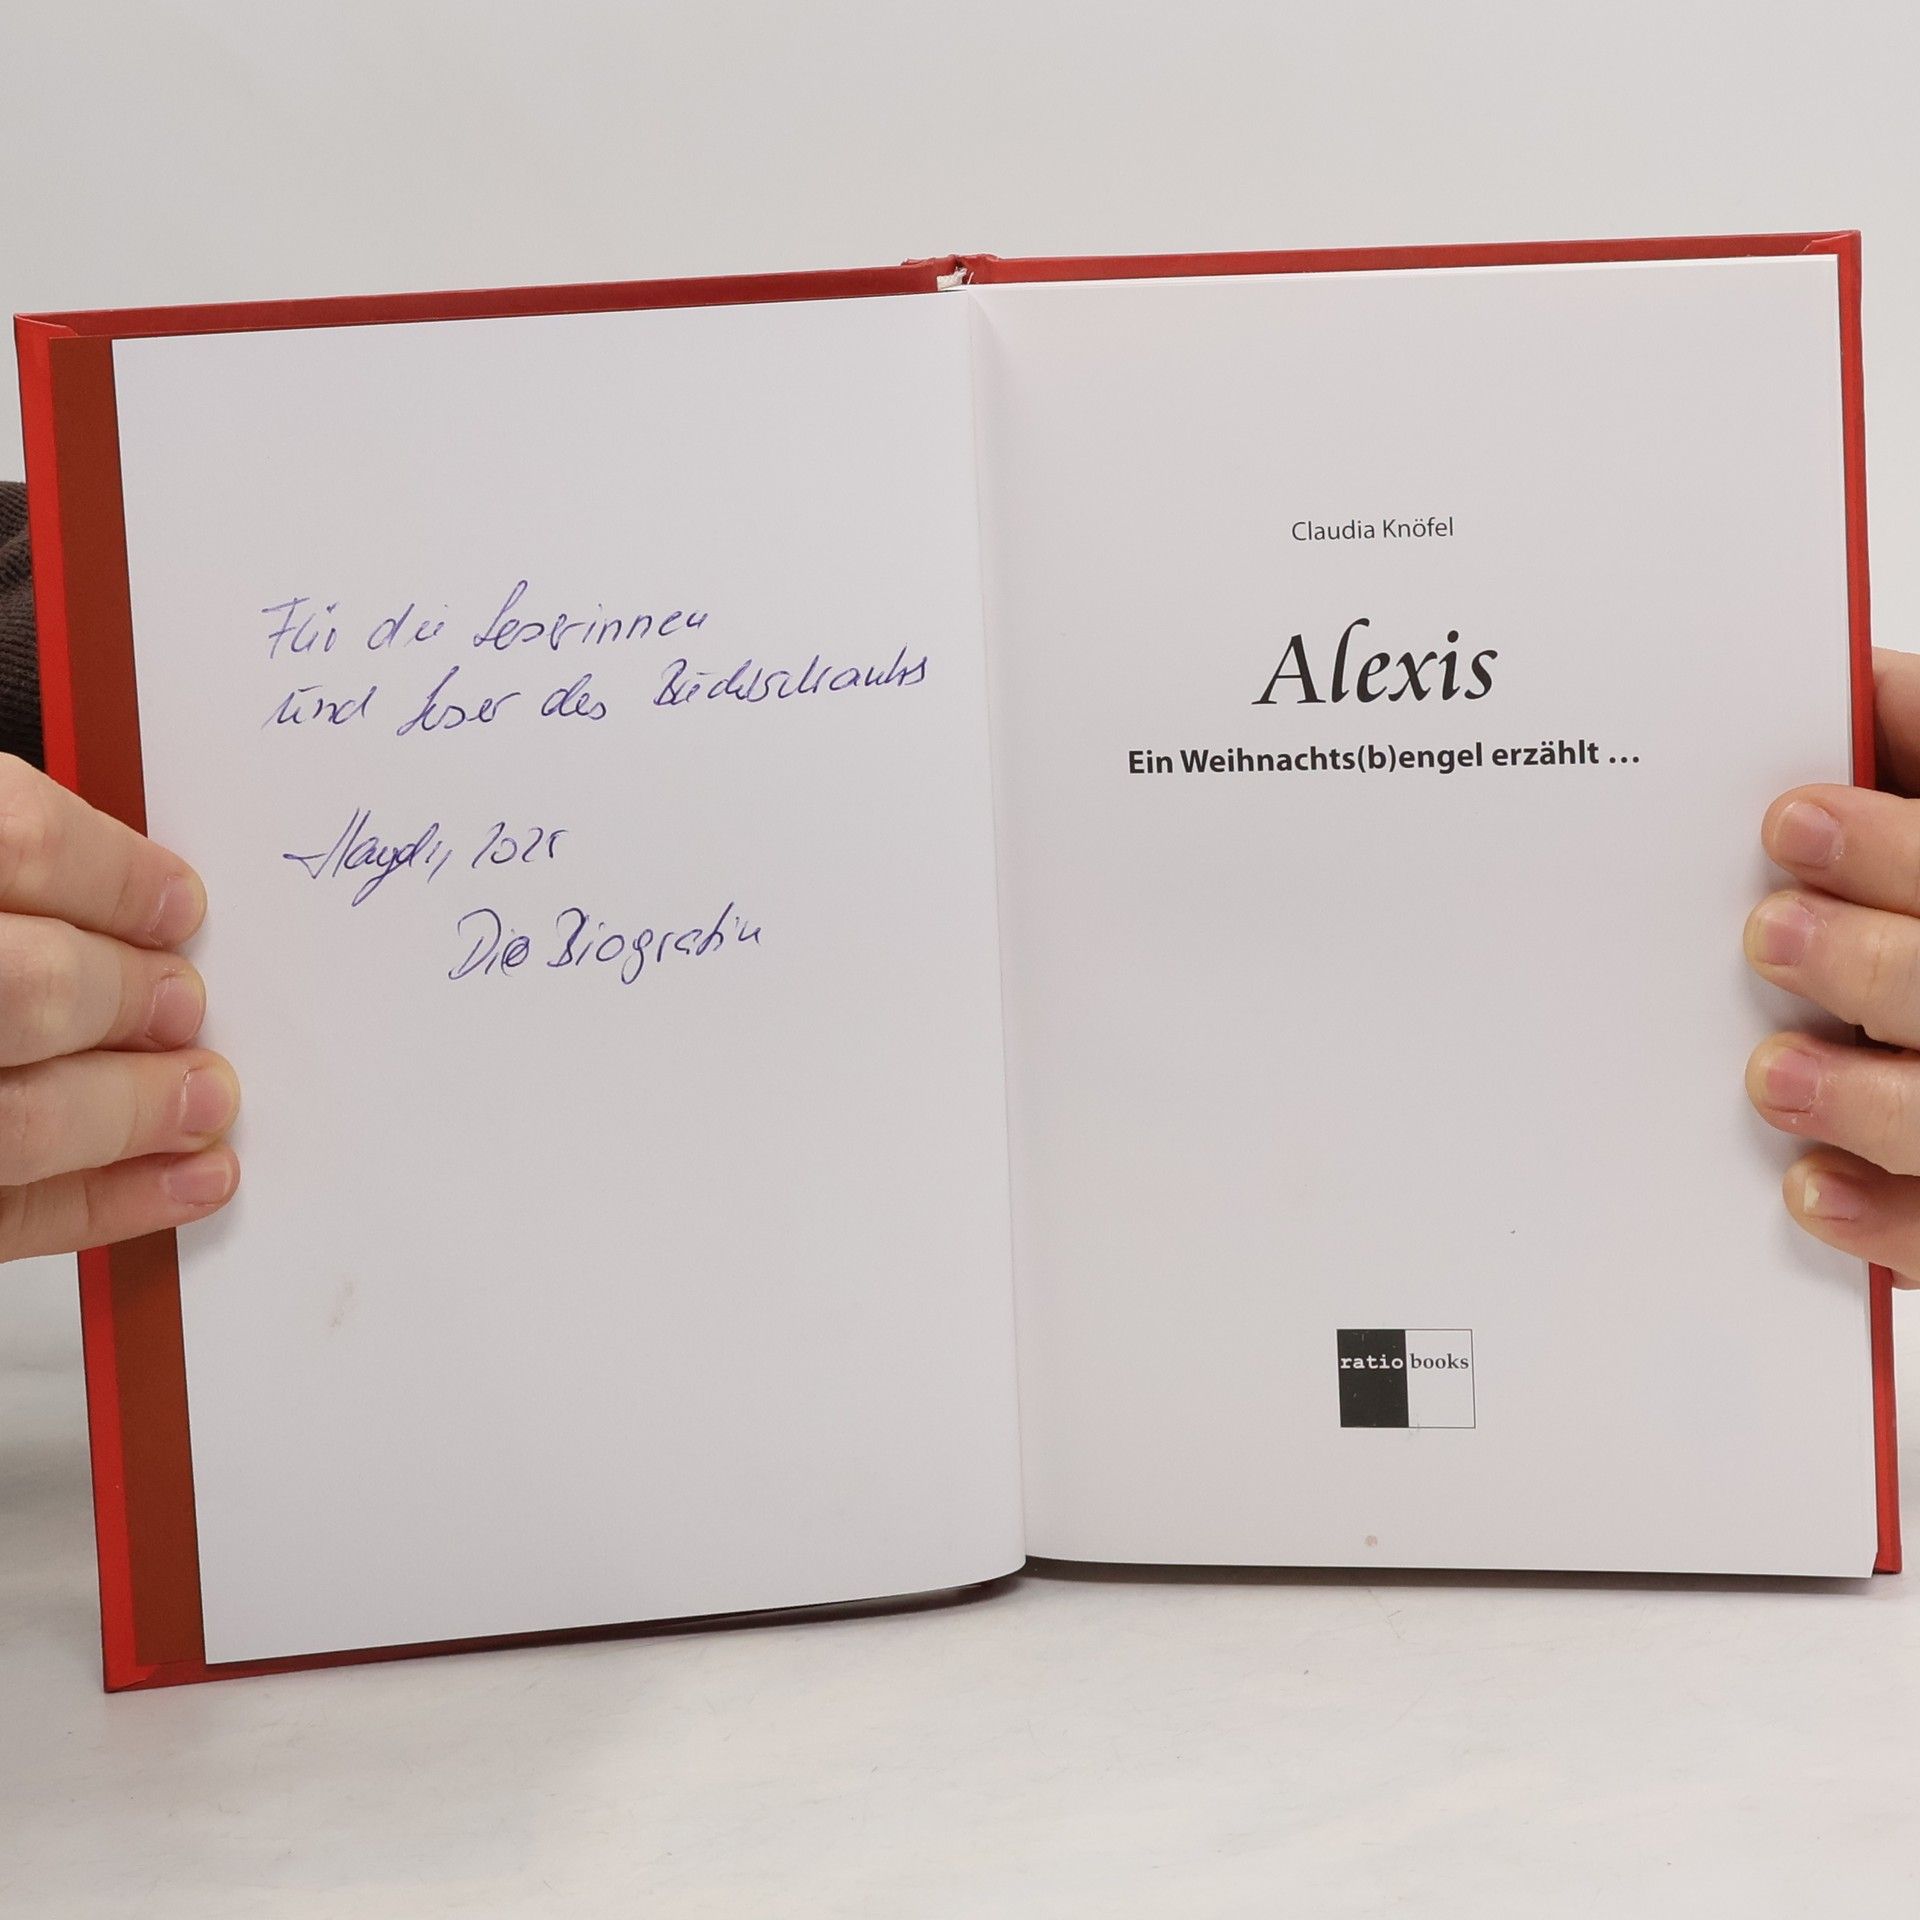 Für die Leserinnen
und Leser des Bücherschranks
2025
Die Biografin
Claudia Knöfel
Alexis
Ein Weihnachts(b)engel erzählt ...
ratio books